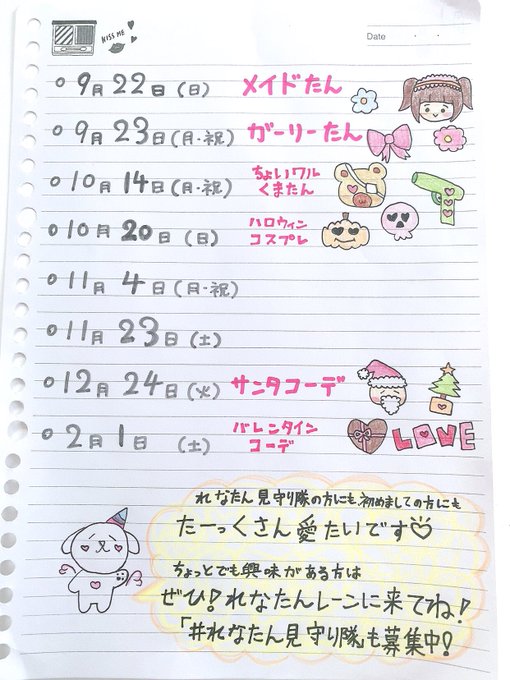 KISS ME
Date ・ ・
○9月22日(日) メイドたん
○9月23日(月・祝) ガーリーたん
○10月14日(月・祝) ちょいワル
くまたん
○10月20日(日) ハロウィン
コスプレ
○11月4日(月・祝)
○11月23日(土)
○12月24日(火) サンタコーデ
○2月1日(土) バレンタイン
コーデ
LOVE
れなたん見守り隊の方にも初めましての方にも
たーっくさん愛たいです♡
ちょっとでも興味がある方は
ぜひ!れなたんレーンに来てね!
「#れなたん見守り隊」も募集中!